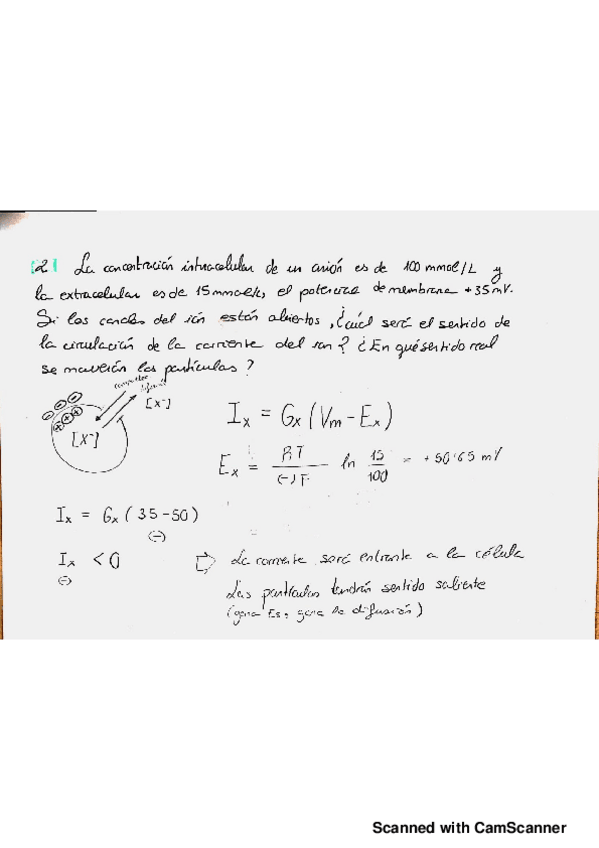 2 La concentración intracelular de un anión es de 100 mmol/L y
la extracelular es de 15 mmol/L, el potencial de membrana +35 mV.
Si los canales del ión están abiertos, ¿cuál será el sentido de
la circulación de la corriente del ion? ¿En qué sentido real
se moverán las partículas?
[X⁻]
[X⁻]
Ix = Gx (Vm - Ex)
Ex = RT / (-)F ln 15/100 = +50'65 mV
Ix = Gx (35-50)
(-)
Ix < 0
(-)
La corriente será entrante a la célula
Las partículas tendrán sentido saliente
(gana Ex, gana la difusión)
Scanned with CamScanner